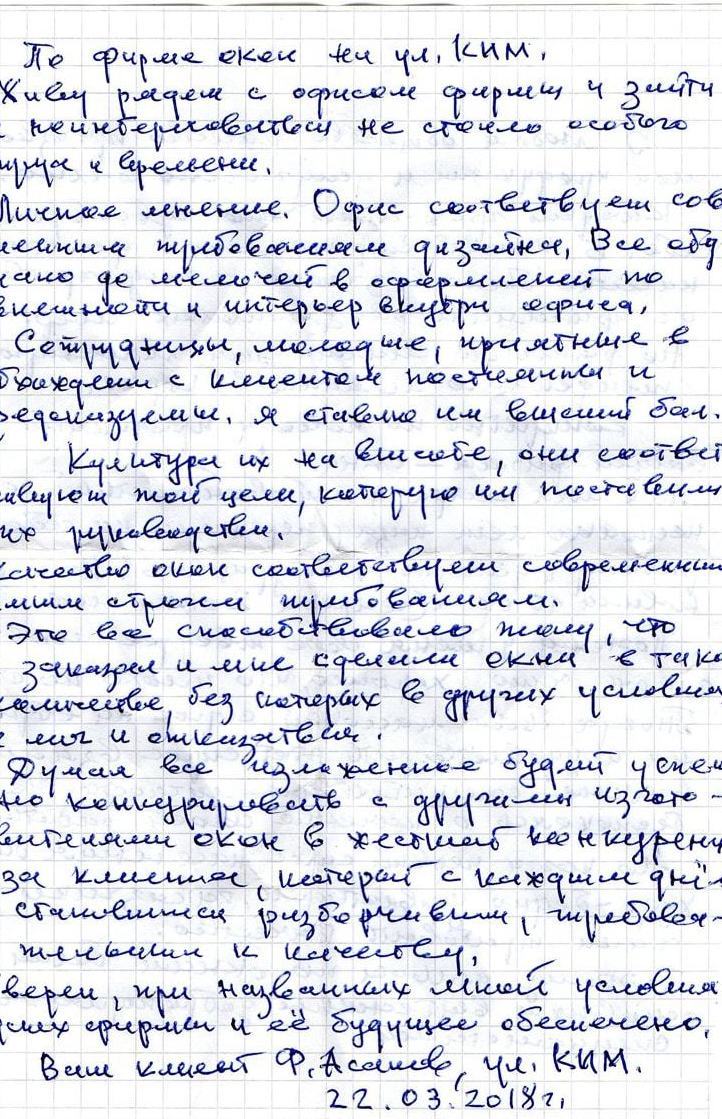 По фирме окон на ул. КИМ.
Живу рядом с офисом фирмы и зайти
и поинтересоваться не стоило особого
труда и времени.
Личное мнение. Офис соответствует сов
меным требованиям дизайна. Все обду
мано до мелочей в оформлений по
внешности и интерьер внутри офиса.
Сотрудницы, молодые, приятные в
бхождении с клиентом постоянны и
редсказуемы. Я ставлю им высший бал.
Культура их на высоте, они соответ
ствуют той цели, которую им поставили
их руководством.
качество окон соответствуем современным
мым строгим требованиям.
Это все способствовало тому, что
заказал и мне сделали окна в тако
количестве, без которых в других условия
мог и отказаться.
Думая все изложенное будет успеш
но конкурировать с другими изгото-
вителями окон в жесткой конкуренц
за клиента, которой с каждым днём
становится разборчивым, требова-
тельным к качеству.
верен, при названных мной условия
фирмы и её будущее обеспечено.
Ваш клиент Ф. Асанов, ул. КИМ.
22.03.2018г.